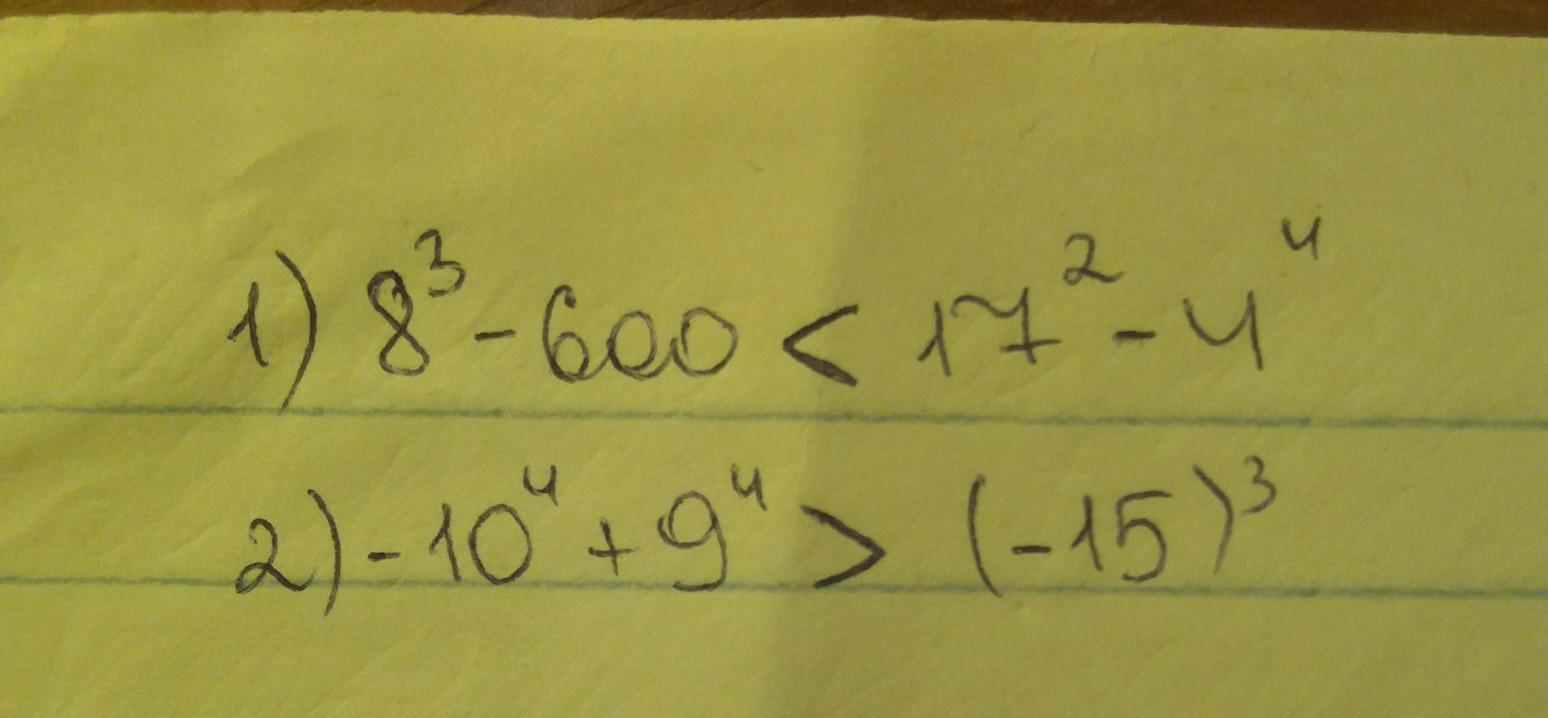 1) 8³ - 600 < 17² - 4⁴
2) -10⁴ + 9⁴ > (-15)³